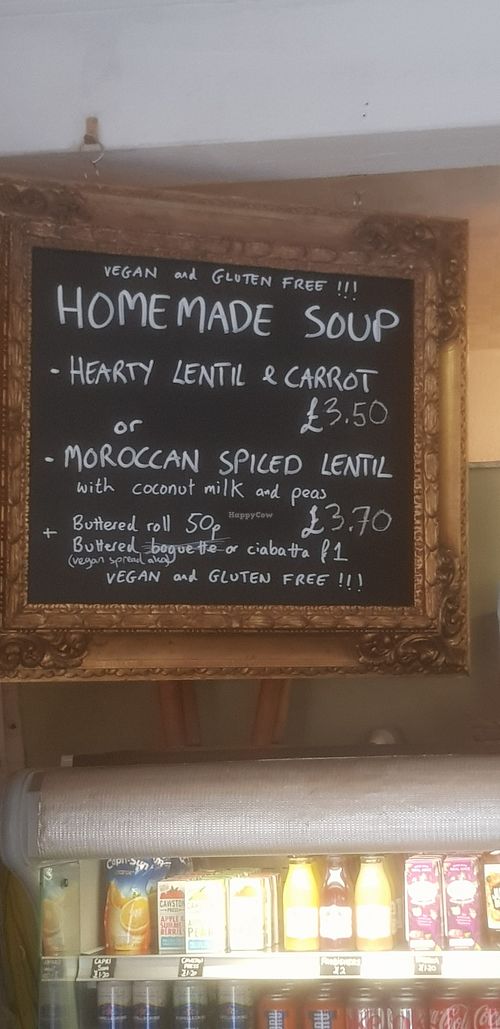 VEGAN and GLUTEN FREE !!!
HOMEMADE SOUP
- HEARTY LENTIL & CARROT
£3.50
or
- MOROCCAN SPICED LENTIL
with coconut milk and peas
£3.70
HappyCow
+ Buttered roll 50p
Buttered baguette or ciabatta £1
(vegan spread also)
VEGAN and GLUTEN FREE !!!
Capri-Sun
CAWSTON
PRESS
APPLE &
SUMMER
BERRIES
CAPRI
SUN
£1.20
£1.20
£2
£1.20